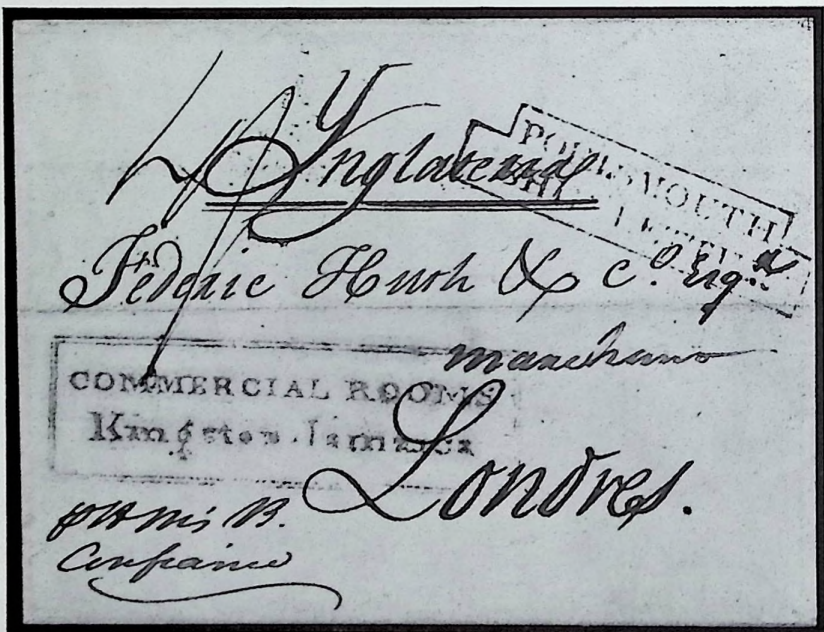 Ynglaterra
PORTSMOUTH
SHIP LETTER
Federic Huth & Co. Esqrs
COMMERCIAL ROOMS
Kingston Jamaica
Londres.